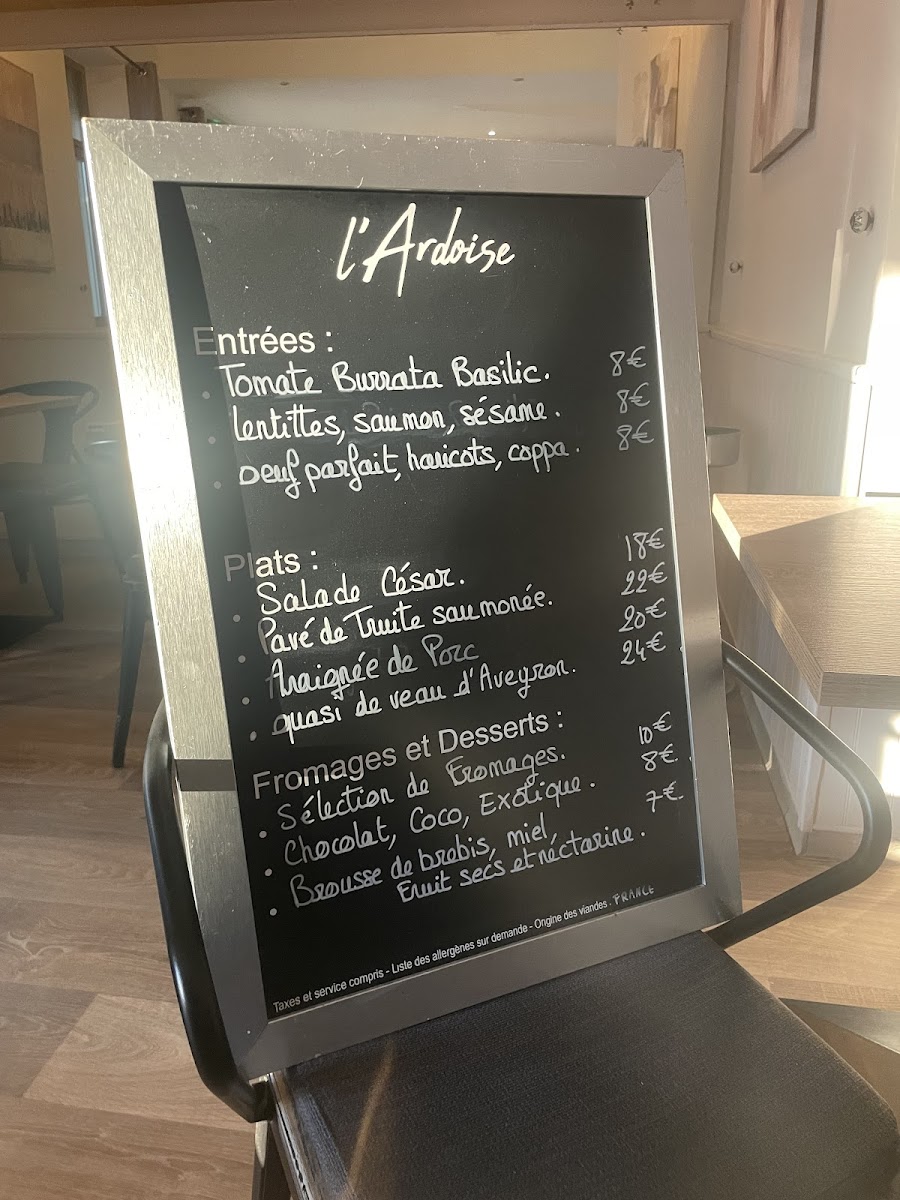 l'Ardoise
Entrées :
• Tomate Burrata Basilic. 8€
• lentilles, saumon, sésame. 8€
• oeuf parfait, haricots, coppa. 8€
Plats :
• Salade César. 18€
• Pavé de Truite saumonée. 22€
• Araignée de Porc 20€
• quasi de veau d'Aveyron. 24€
Fromages et Desserts :
• Sélection de Fromages. 10€
• Chocolat, Coco, Exotique. 8€
• Brousse de brebis, miel, 7€
Fruit secs et néctarine.
Taxes et service compris - Liste des allergènes sur demande - Origine des viandes : FRANCE